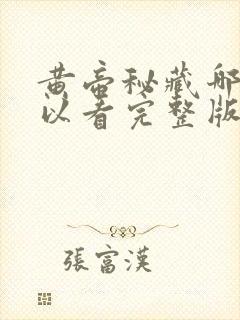 黄帝秘藏哪
以看完整版
張富漢